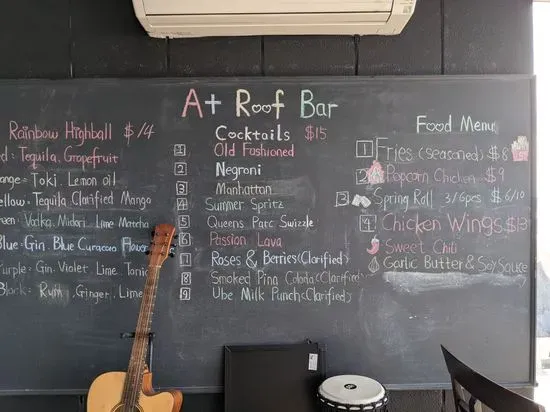 A+ Roof Bar
Rainbow Highball $14
Red: Tequila, Grapefruit
Orange: Toki. Lemon oil
Yellow: Tequila Clarified Mango
Green: Vodka. Midori. Lime Matcha
Blue: Gin. Blue Curacao Flower
Purple: Gin. Violet. Lime. Tonic
Black: Rum, Ginger. Lime
Cocktails $15
1 Old Fashioned
2 Negroni
3 Manhattan
4 Summer Spritz
5 Queens Parc Swizzle
6 Passion Lava
7 Roses & Berries (Clarified)
8 Smoked Pina Colada (Clarified)
9 Ube Milk Punch (Clarified)
Food Menu
1 Fries (seasoned) $8
2 Popcorn Chicken $9
3 Spring Roll 3/6pcs $6/10
4 Chicken Wings $13
Sweet Chili
Garlic Butter & Soy Sauce